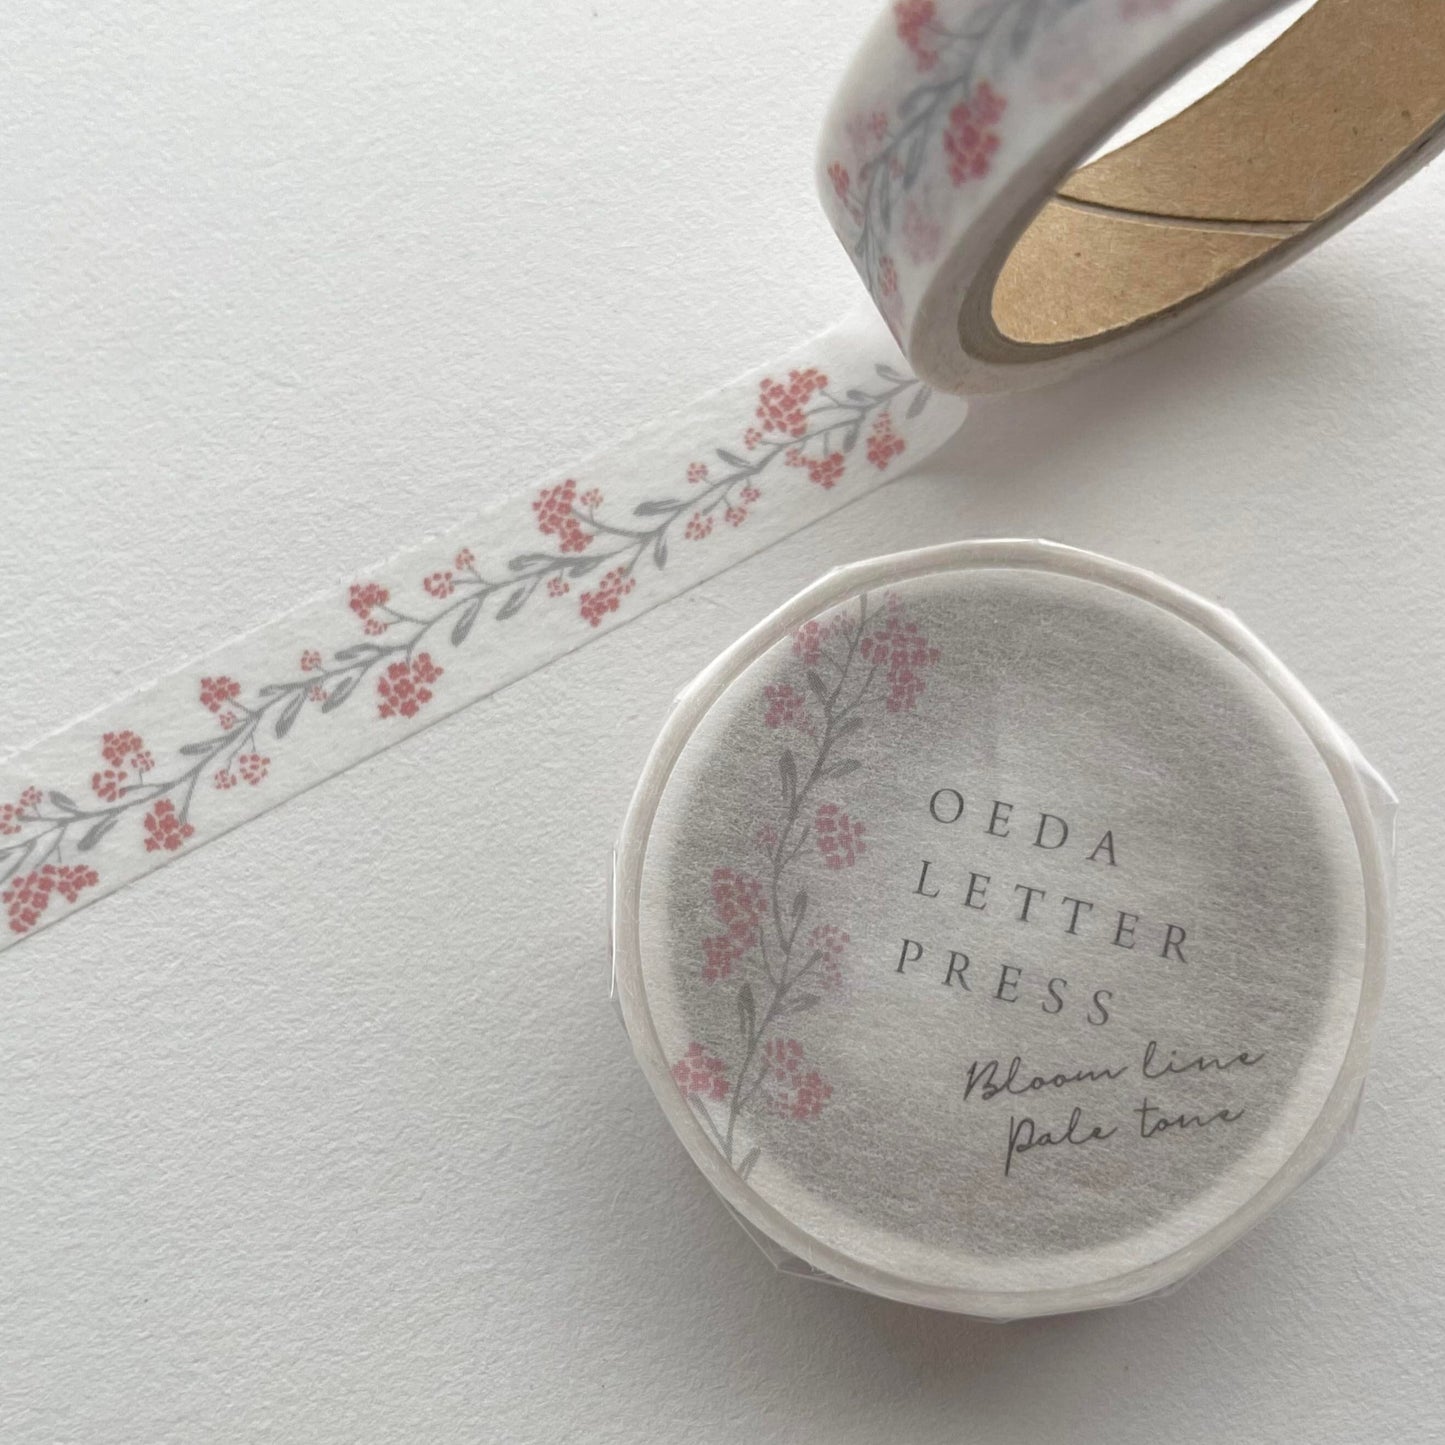 OEDA
LETTER
PRESS
Bloom line
Pale tone